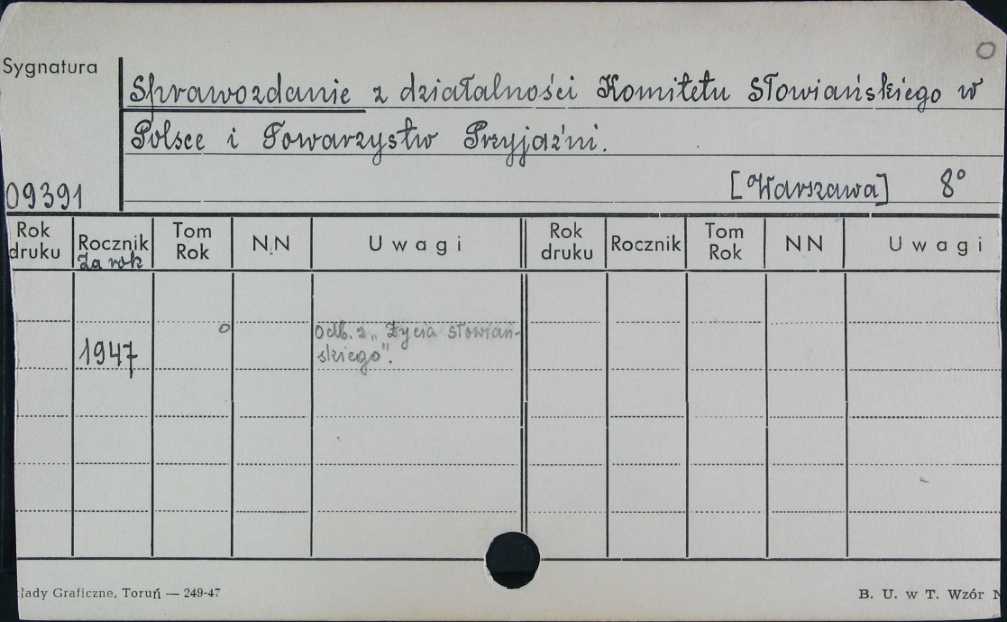 O
Sygnatura
Sprawozdanie z działalności Komitetu Słowiańskiego w
Polsce i Towarzystw Przyjaźni.
[Warszawa] 8°
09391
Rok druku Rocznik Za rok Tom Rok N.N Uwagi Rok druku Rocznik Tom Rok NN Uwagi
1947 o Odb. z „Życia słowiań-
skiego".
łady Graficzne, Toruń — 249-47
B. U. w T. Wzór N